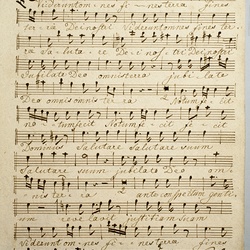 Viderunt om- nes fi- nes terra fines
terra Dei nostri Viderunt omnes fines ter-
ra salutare Dei nostri Dei nostri
Jubilate Deo omnis terra jubilate
Deo omnis omnis ter- ra Notum fecit
notum fecit notum fecit
Dominus Salutare Salutare suum
Salutare suum jubilate Deo om-
nis terra ante conspectum genti-
um revelavit justitiam suam
Viderunt om- nes fi- nes terra fines